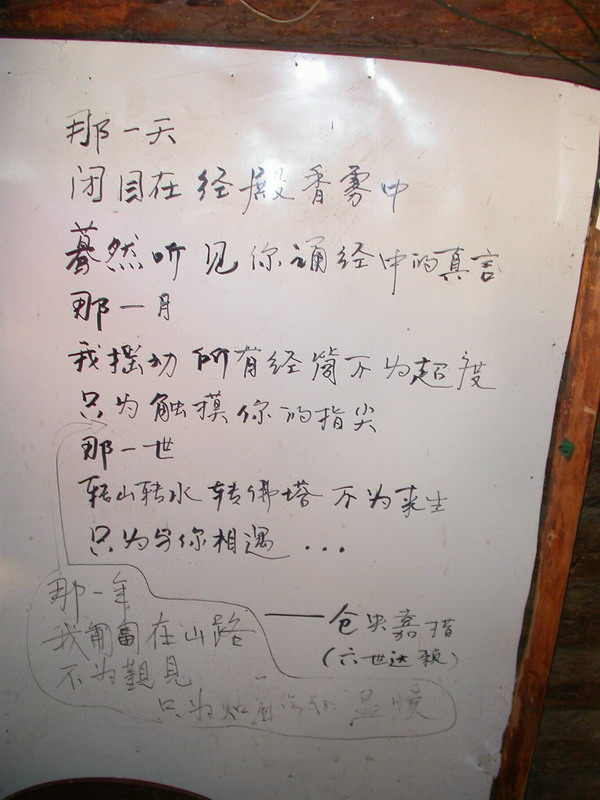 那一天
闭目在经殿香雾中
蓦然听见你诵经中的真言
那一月
我摇动所有经筒不为超度
只为触摸你的指尖
那一世
转山转水转佛塔不为来生
只为与你相遇...
——仓央嘉措
(六世达赖)
那一年
我匍匐在山路
不为觐见
只为